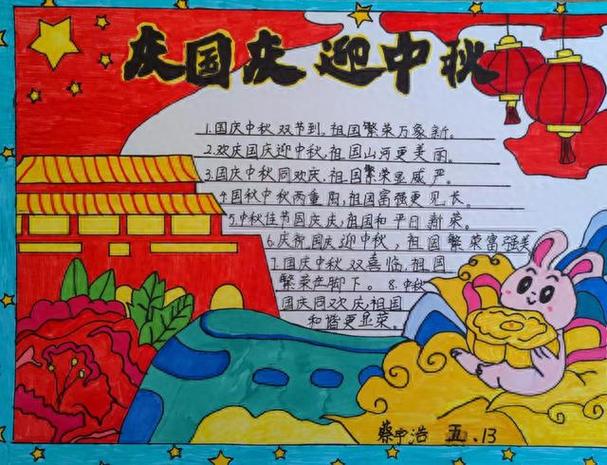 庆国庆 迎中秋
1.国庆中秋双节到,祖国繁荣万象新。
2.欢庆国庆迎中秋,祖国山河更美丽。
3.国庆中秋同欢庆,祖国繁荣显威严。
4.国秋中秋两重周,祖国富强更见长。
5.中秋佳节国庆庆,祖国和平日新荣。
6.庆祝国庆迎中秋,祖国繁荣富强美
7.国庆中秋双喜临,祖国
繁荣在脚下。8.中秋
国庆同欢庆,祖国
和谐更显荣。
蔡宇浩 五.13